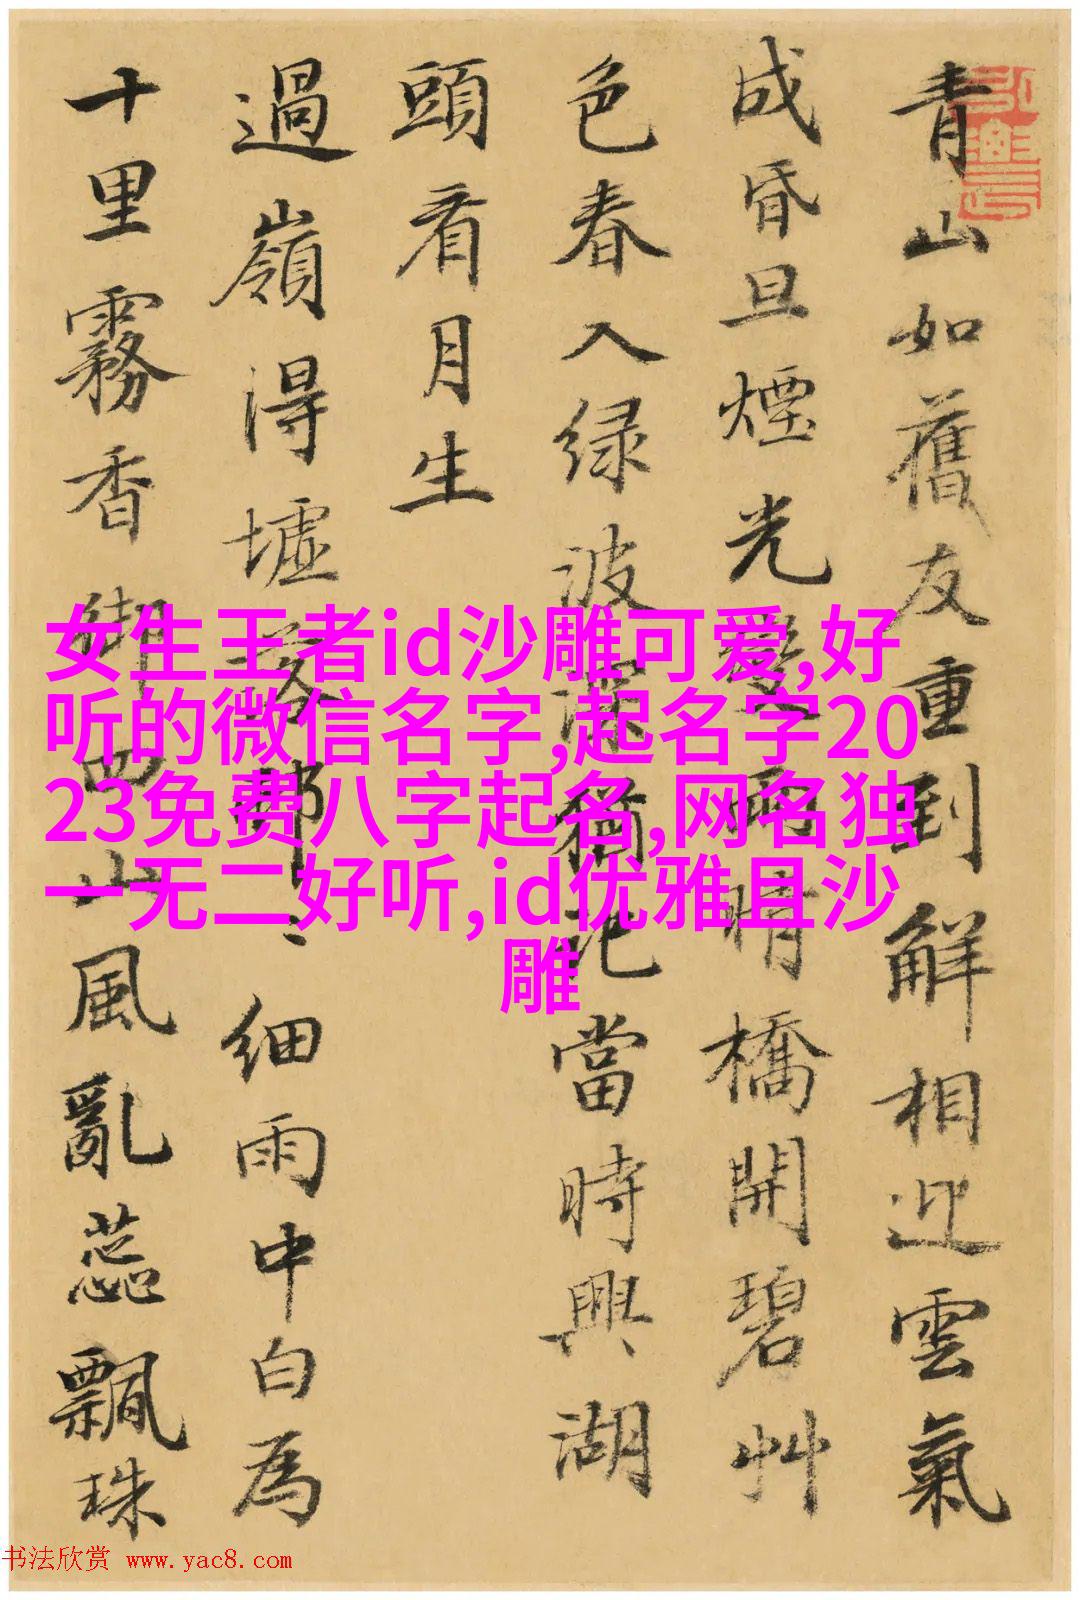 青山如舊友重到解相迎雲氣
成昏旦煙光變雨晴橋開碧艸
色春入绿波深猶記當時興湖
頭看月生
過嶺得墟落邨、細雨中白為
十里霧香四山風亂蕊飄珠
女生王者id沙雕可爱,好
听的微信名字,起名字20
23免费八字起名,网名独
一无二好听,id优雅且沙
雕
书法欣赏 www.yac8.com